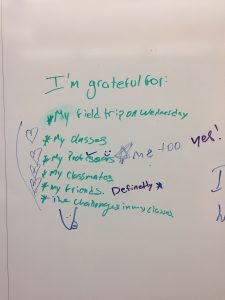 I'm grateful for:
*My field trip on Wednesday
*My Classes
*My Professors *me too yes!
*My Classmates
*My friends. Definetly *
*The challenges in my classes
I